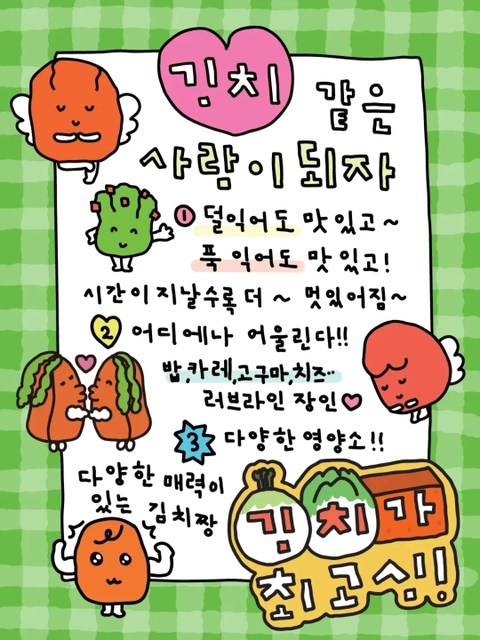 김치 같은
사람이 되자
1 덜익어도 맛있고~
푹 익어도 맛있고!
시간이 지날수록 더 ~ 멋있어짐~
2 어디에나 어울린다!!
밥,카레,고구마,치즈..
러브라인 장인
3 다양한 영양소!!
다양한 매력이
있는 김치짱
김치가
최고심!